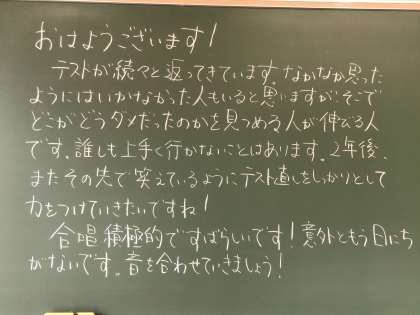 おはようございます!
テストが続々と返ってきています。なかなか思った
ようにはいかなかった人もいると思いますが、そこで
どこがどうダメだったのかを見つめる人が伸びる人
です。誰しも上手く行かないことはあります。2年後、
またその先で笑えているようにテスト直しをしっかりとして
力をつけていきたいですね!
合唱積極的ですばらしいです!意外ともう日にち
がないです。音を合わせていきましょう!